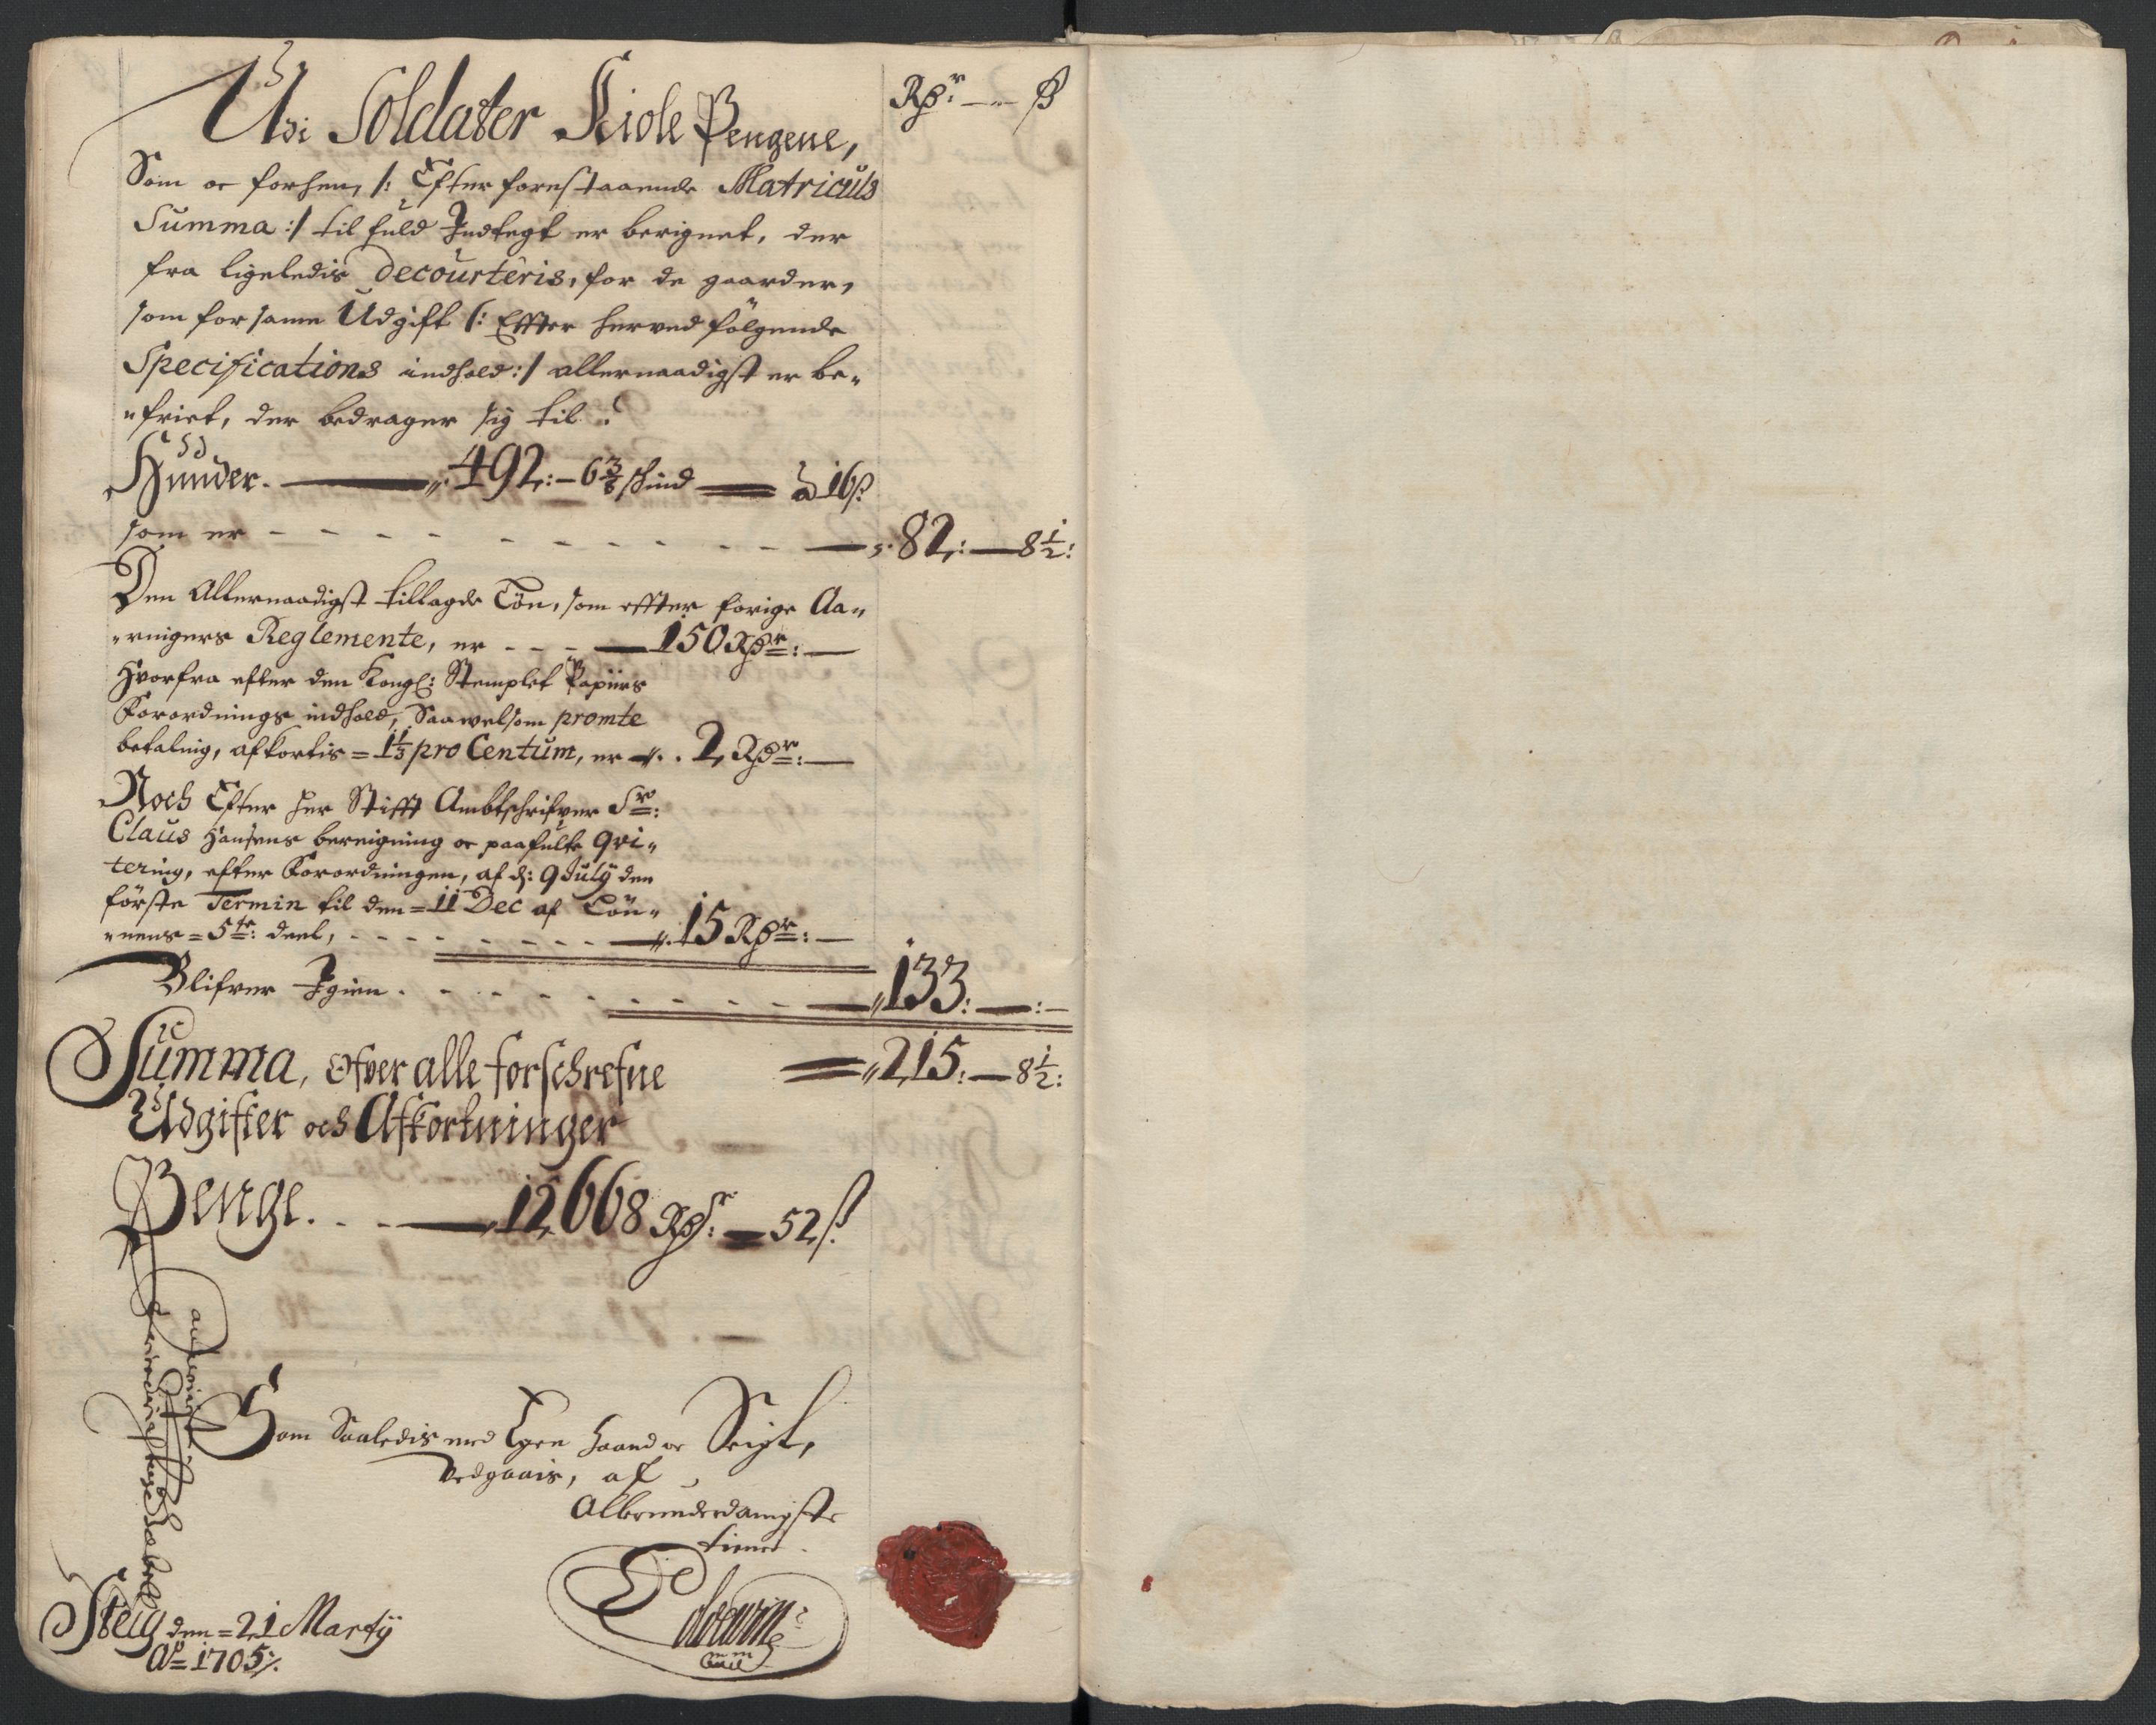 Udi Soldater Kiole Pengene,
Rdr. — ß
Som oc forhen, /: Efter forestaaende Matriculs
Summa :/ til fuld Indtegt er berignet, der
fra ligeledis decourteris, for de gaarder,
som for samme Udgift /: Effter herved følgende
Specifications indhold :/ allernaadigst er be-
friet, der bedrager sig til.
Hunder. — 492: — 6 3/8 skind — à 16 ß
som er — 82: — 8 1/2:
Den Allernaadigst tillagde Løn, som effter forige Aa-
ringers Reglemente, er — 150 Rdr: —
Hvorfra efter den Kongl: Stemplet Papiirs
Forordnings indhold, Saavelsom promte
betaling, afkortis = 1 1/3 pro Centum, er — 2 Rdr: —
Noch Efter her Stifft Ambtschrifver Sr:
Claus Hansens beregning oc paafulte qvi-
tering, efter Forordningen, af d: 9 July den
første Termin til den = 11 Dec af Løn-
nens = 5te: deel, — 15 Rdr: —
Blifver Igien. — 133: —:—
Summa, Ofver alle forschrefne — 215: — 8 1/2:
Udgifter och Afkortninger
Penge. — 12668 Rdr: — 52 ß
Som Saaledis med Egen haand oc Seigl,
vedgaais, af
Allerunderdanigste
tiener
Steig den = 21 Martij
Ao = 1705 /.